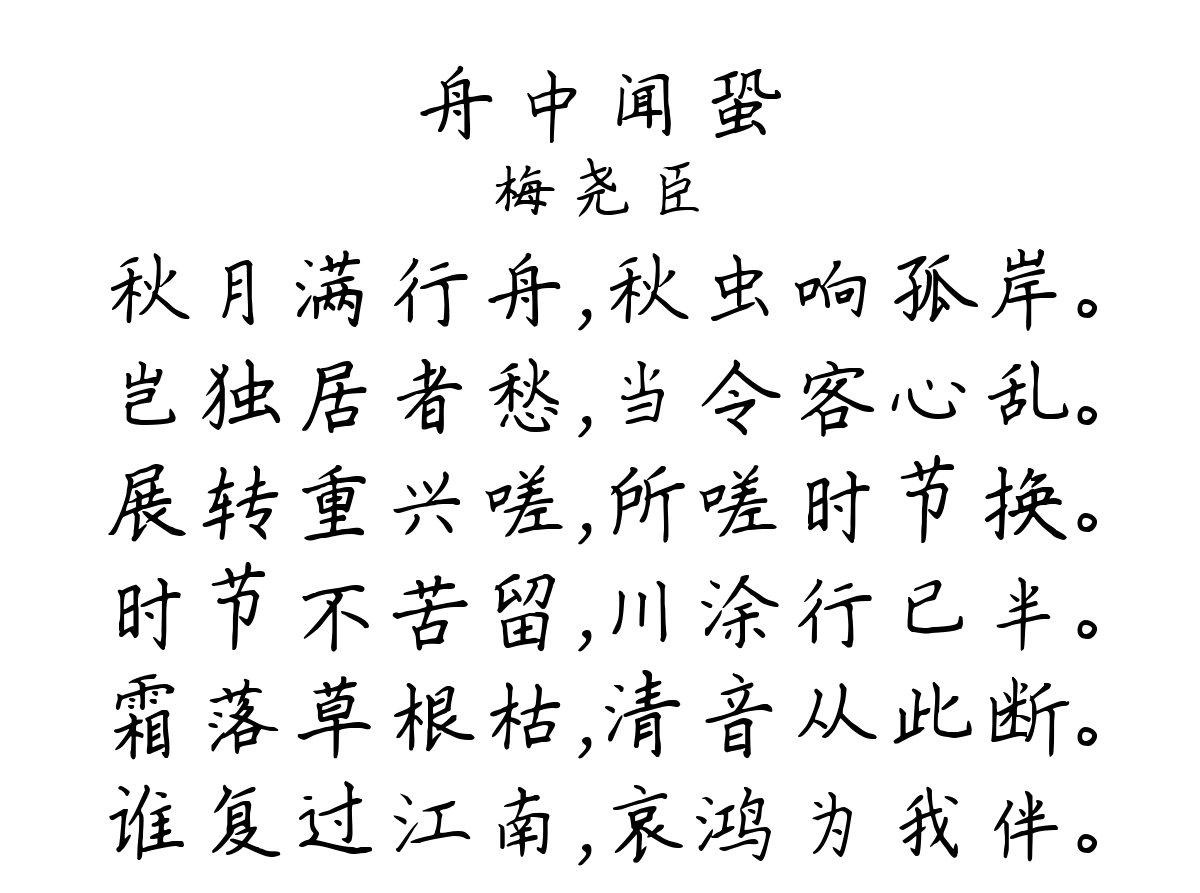 舟中闻蛩
梅尧臣
秋月满行舟,秋虫响孤岸。
岂独居者愁,当令客心乱。
展转重兴嗟,所嗟时节换。
时节不苦留,川涂行已半。
霜落草根枯,清音从此断。
谁复过江南,哀鸿为我伴。